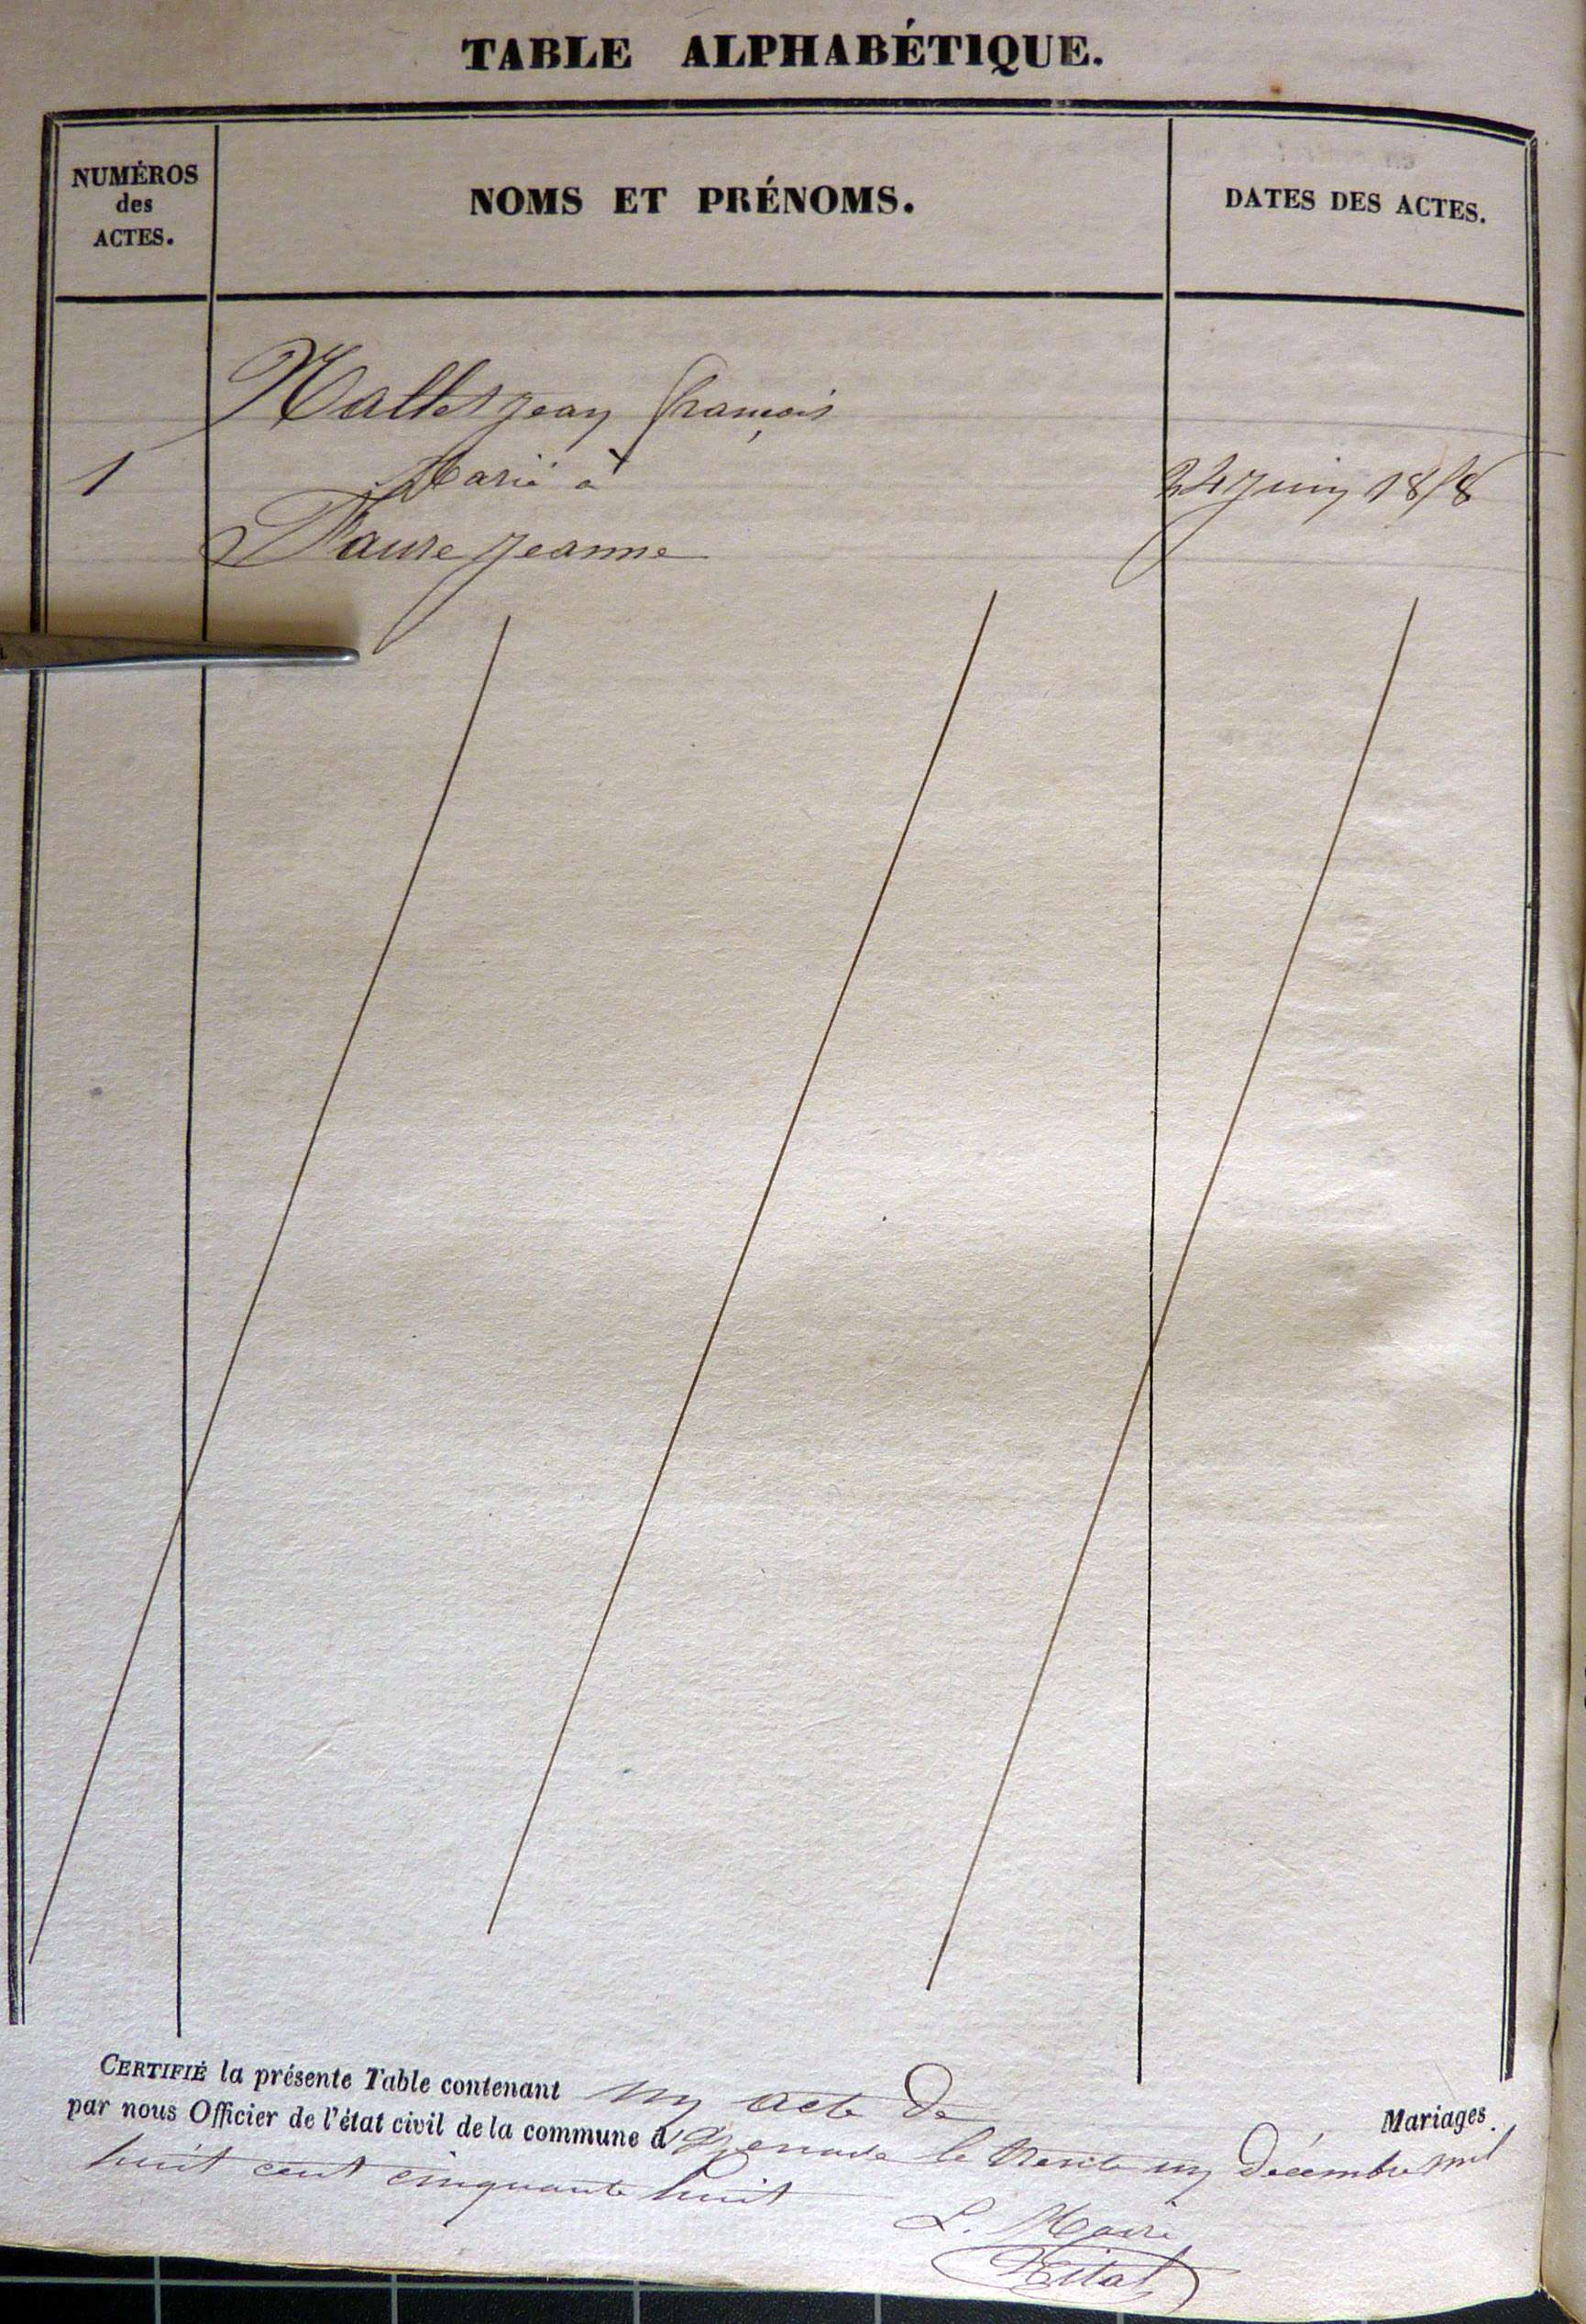 TABLE ALPHABÉTIQUE.
NUMÉROS
des
ACTES.
NOMS ET PRÉNOMS.
DATES DES ACTES.
jean françois
1
Marié à
24 juin 1858
Faure jeanne
CERTIFIÉ la présente Table contenant un acte de Mariages.
par nous Officier de l'état civil de la commune d le trente un décembre mil
huit cent cinquante huit
L. Maire